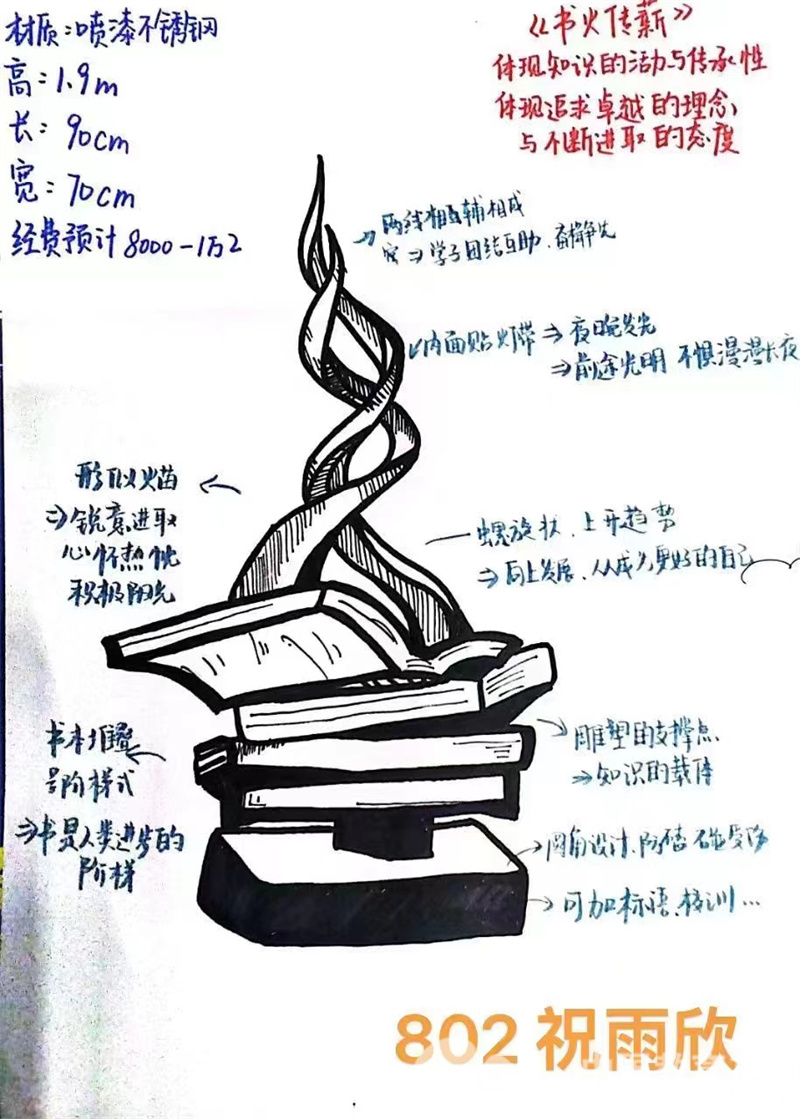 材质:喷漆不锈钢
高:1.9m
长:90cm
宽:70cm
经费预计8000-1万2
《书火传薪》
体现知识的活力与传承性
体现追求卓越的理念
与不断进取的态度
两线相互辅相成
⇒学子团结互助、奋楫争先
内面贴灯带⇒夜晚发光
⇒前途光明 不惧漫漫长夜
形似火苗
⇒锐意进取
心怀热忱
积极阳光
螺旋状、上升趋势
⇒向上发展、从成为更好的自己
书本堆叠
呈阶梯式
⇒书是人类进步的
阶梯
雕塑的支撑点
⇒知识的载体
圆角设计、防磕碰受伤
可加标语、校训...
802 祝雨欣